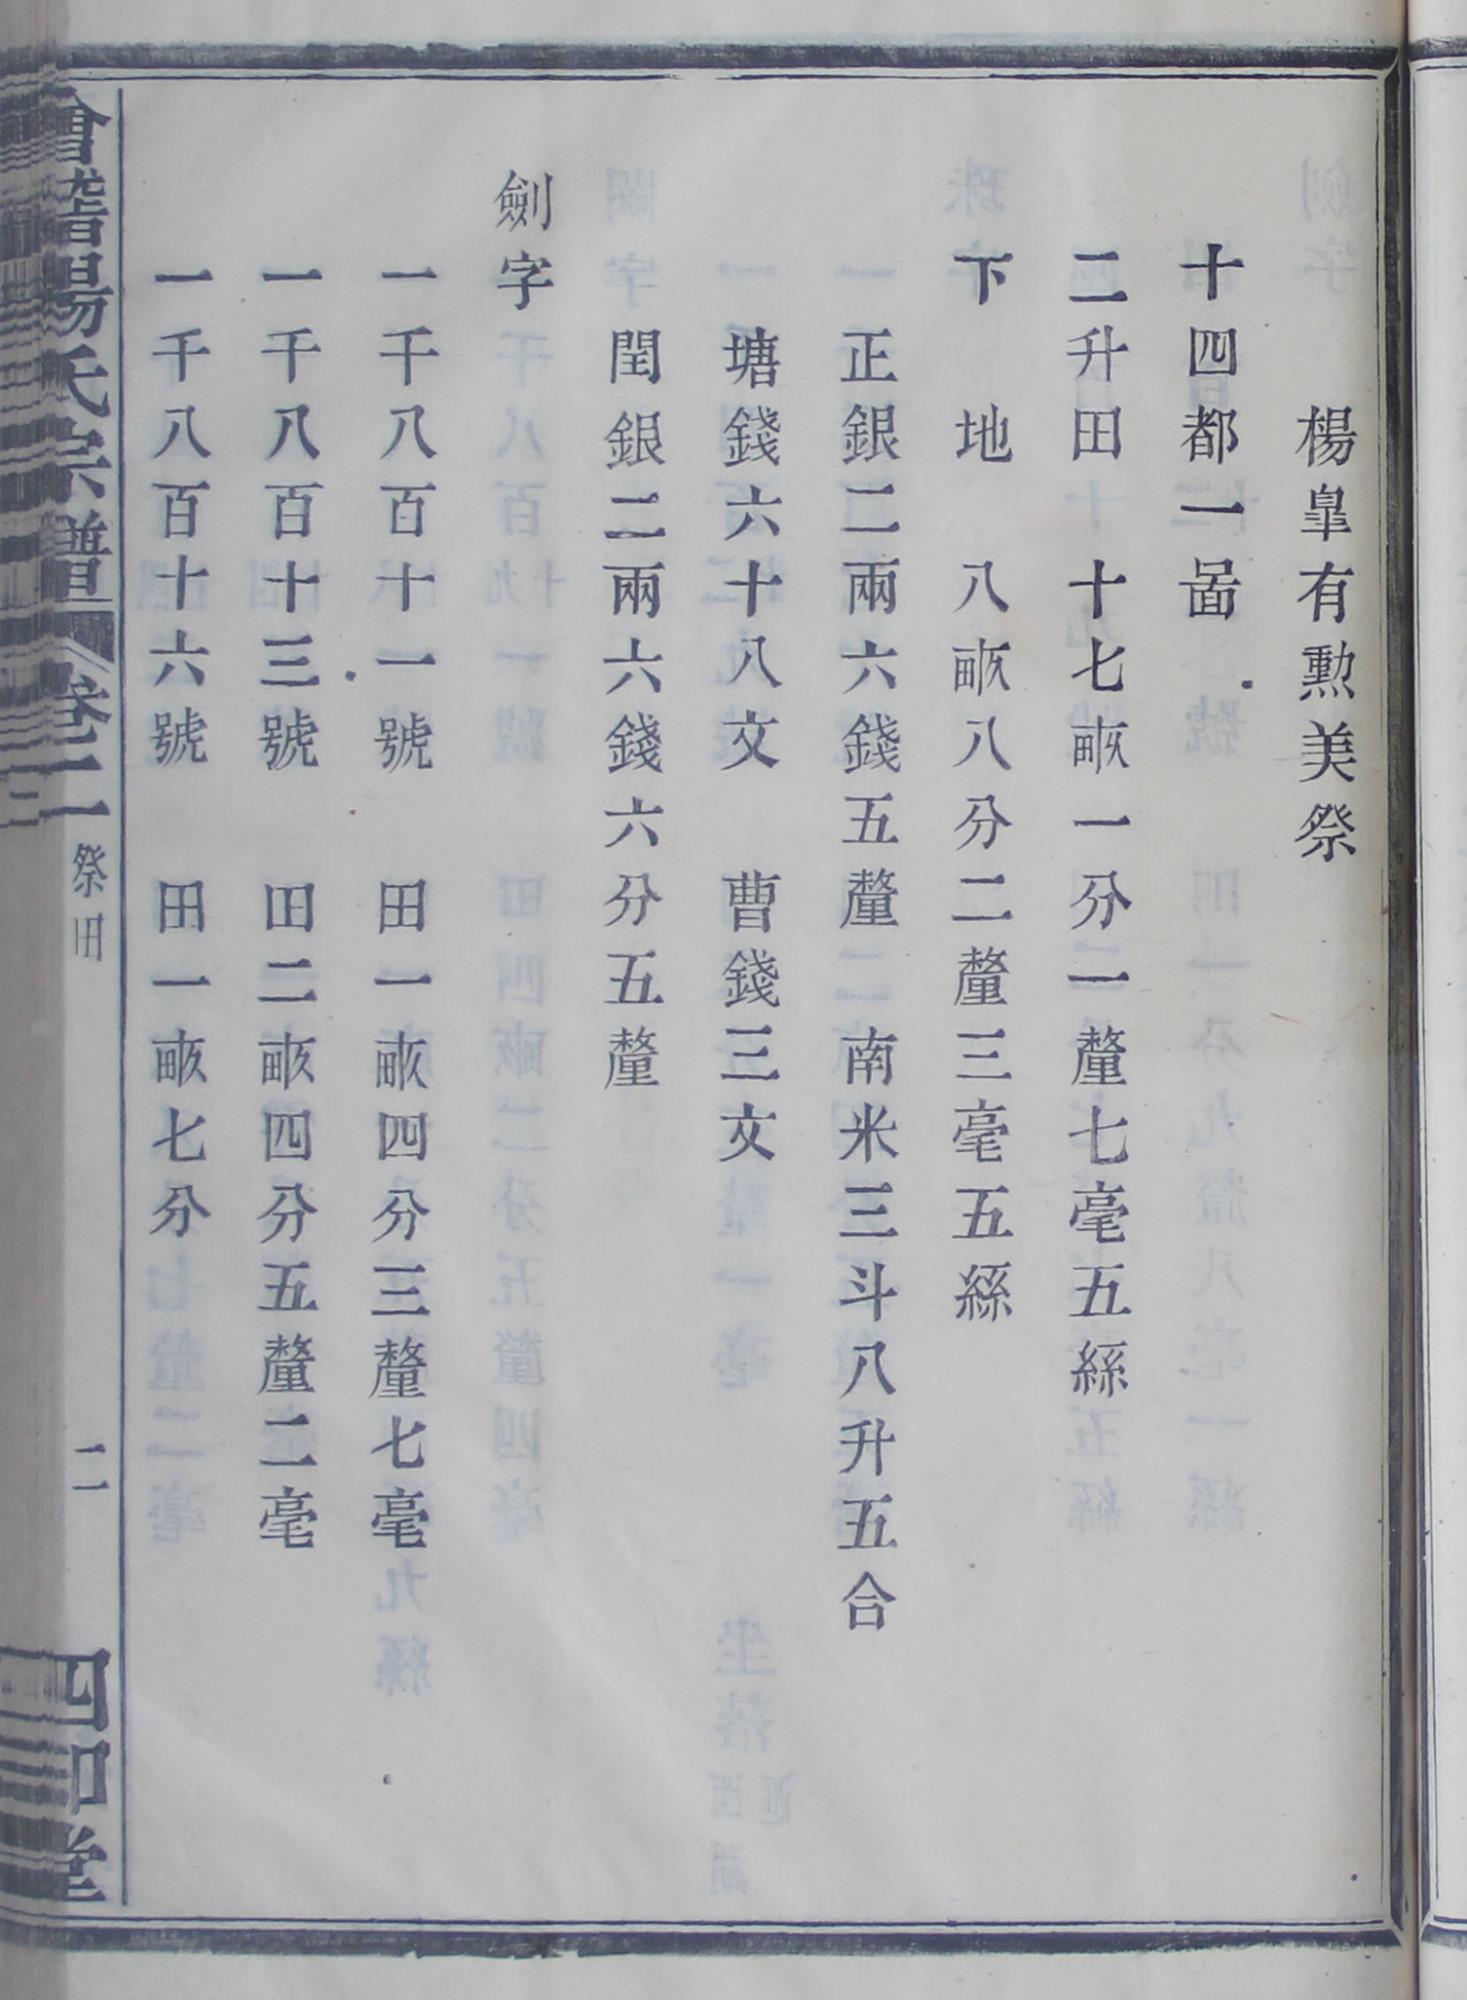 楊臯有勲美祭
十四都一啚
二升田十七畝一分一釐七毫五絲
下地八畝八分二釐三毫五絲
正銀二兩六錢五釐 南米三斗八升五合
塘錢六十八文 曹錢三文
閏銀二兩六錢六分五釐
劍字
一千八百十一號 田一畝四分三釐七毫
一千八百十三號 田二畝四分五釐二毫
一千八百十六號 田一畝七分
會稽楊氏宗譜 卷二 祭田 二 四知堂